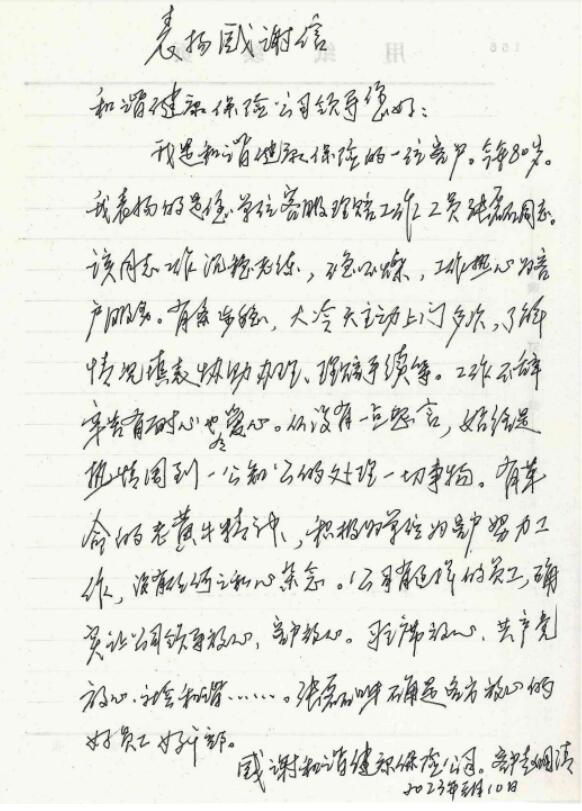 表扬感谢信
和谐健康保险公司领导您好：
我是和谐健康保险的一位客户。今年80岁。
我表扬的是您单位客服理赔工作工员张磊同志。
该同志工作沉稳老练，不急不燥，工作热心为客
户服务。有条步稳，大冷天主动上门多次，了解
情况填表协助办理、理赔手续等。工作不辞
辛苦有耐心也有爱心。从没有一点怨言，始终是
热情周到一公知公的处理一切事物。有革
命的老黄牛精神，积极为单位为客户努力工
作，没有任何之私心杂念。公司有这样的员工，确
实让公司领导放心，客户放心。习主席放心、共产党
放心、社会和谐……。张磊的确是各方放心的
好员工好干部。
感谢和谐健康保险公司。客户
2023年 月10日